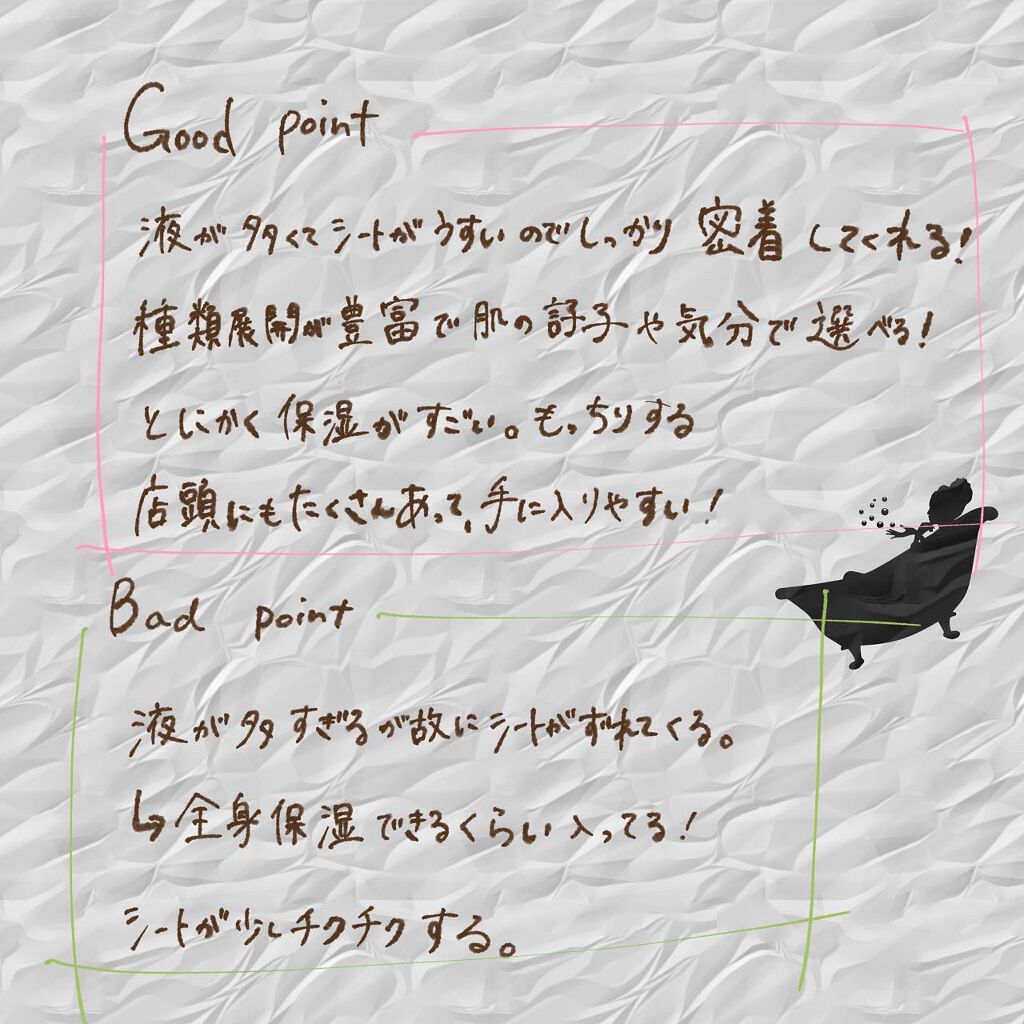 Good point
液が多くてシートがうすいのでしっかり密着してくれる!
種類展開が豊富で肌の調子や気分で選べる!
とにかく保湿がすごい。もっちりする
店頭にもたくさんあって、手に入りやすい!
Bad point
液が多すぎるが故にシートがずれてくる。
↳全身保湿できるくらい入ってる!
シートが少しチクチクする。